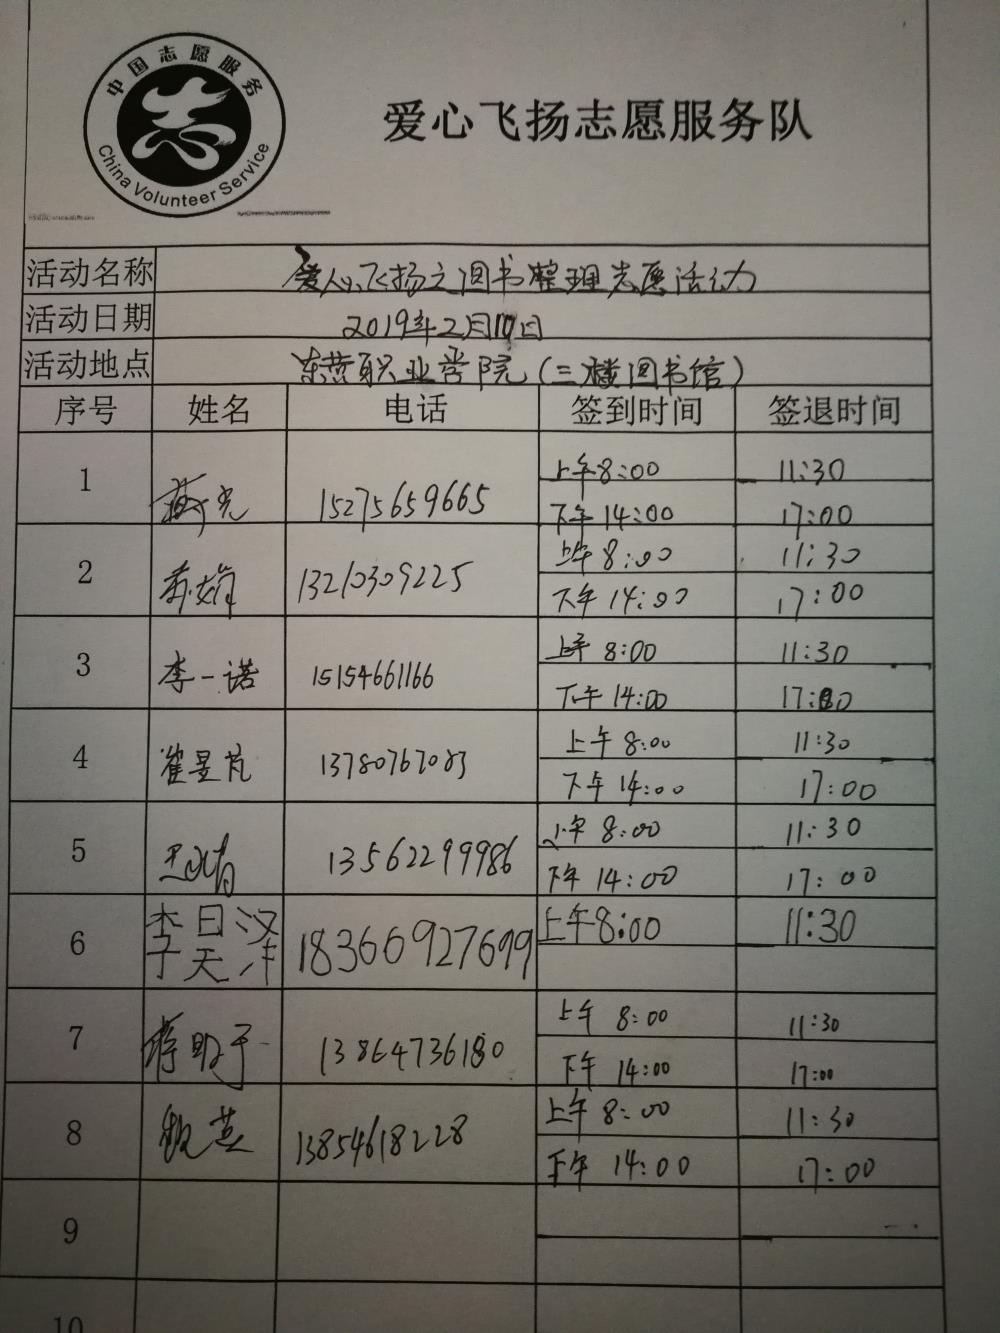 中国志愿服务
China Volunteer Service
爱心飞扬志愿服务队
活动名称 爱心飞扬之图书整理志愿活动
活动日期 2019年2月10日
活动地点 东营职业学院(三楼图书馆)
序号 姓名 电话 签到时间 签退时间
1 15275659665 上午8:00 11:30
下午14:00 17:00
2 13210309225 上午8:00 11:30
下午14:00 17:00
3 李一诺 15154661166 上午8:00 11:30
下午14:00 17:00
4 崔昱芃 上午8:00 11:30
下午14:00 17:00
5 13562299986 上午8:00 11:30
下午14:00 17:00
6 李昊泽 18366927699 上午8:00 11:30
7 13864736180 上午8:00 11:30
下午14:00 17:00
8 13854618228 上午8:00 11:30
下午14:00 17:00
9
10